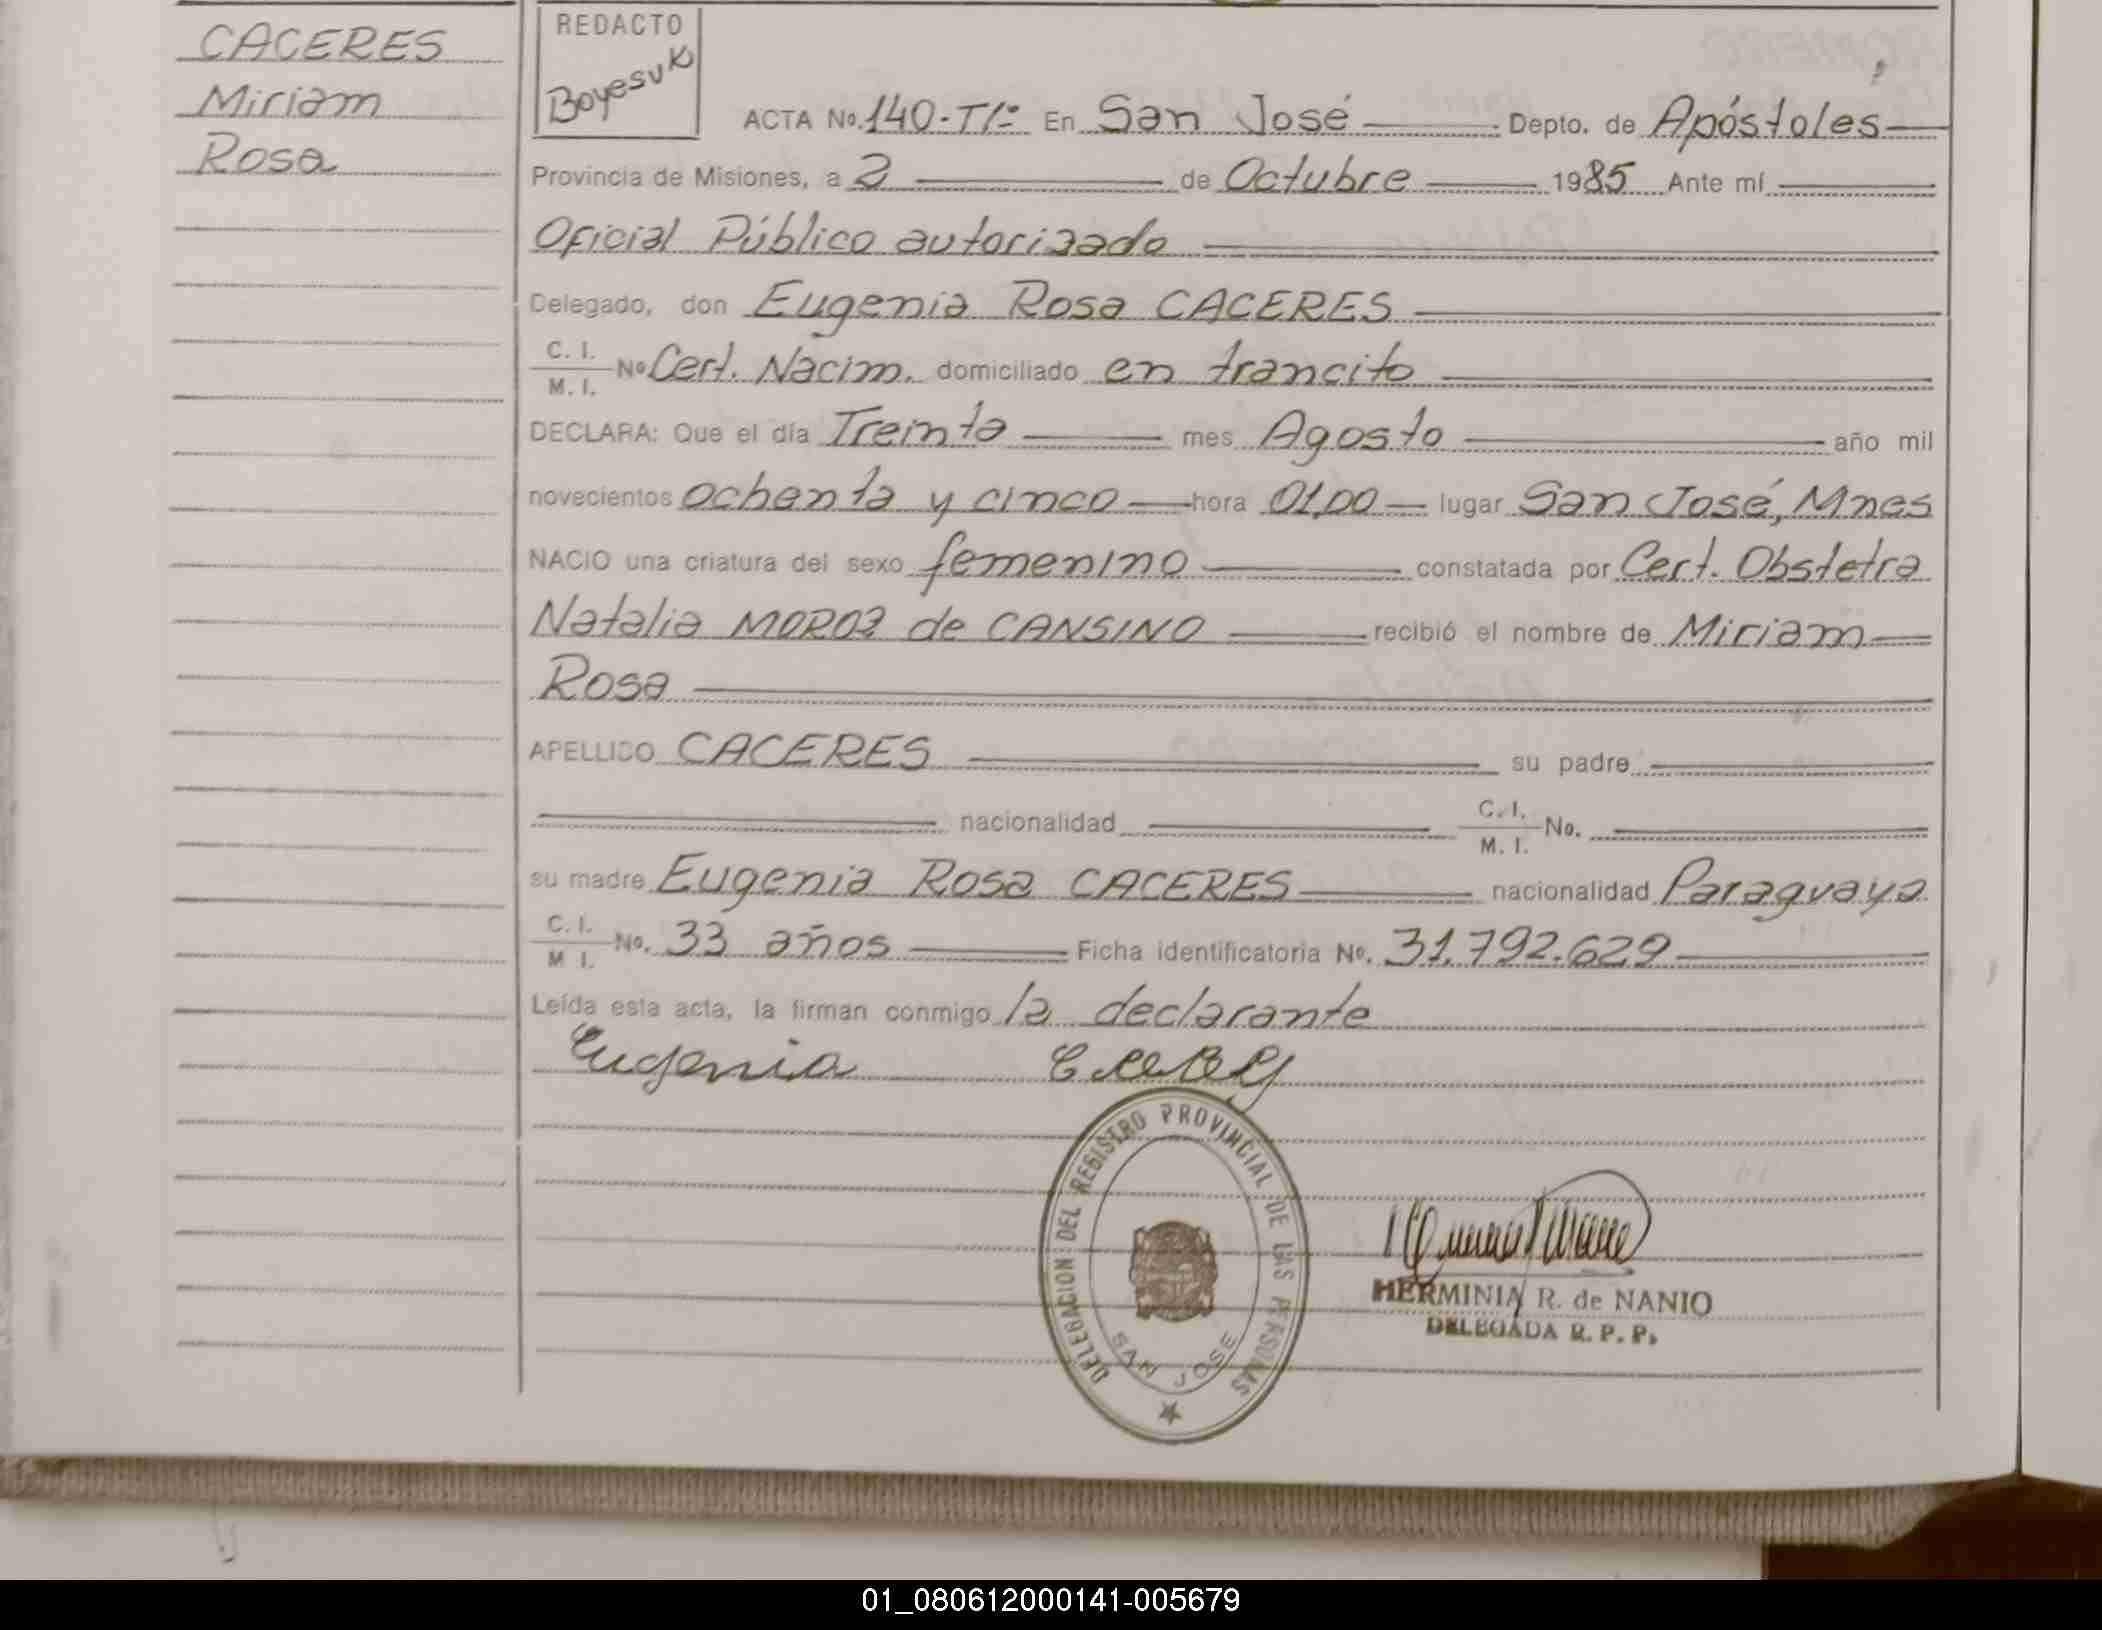 CACERES
Miriam
Rosa
REDACTO
Boyesuk
ACTA No. 140-T1º En San José Depto. de Apóstoles
Provincia de Misiones, a 2 de Octubre 1985 Ante mí
Oficial Público autorizado
Delegado, don Eugenia Rosa CACERES
C. I. / M. I. No Cert. Nacim. domiciliado en trancito
DECLARA: Que el día Treinta mes Agosto año mil
novecientos ochenta y cinco hora 01,00 lugar San José, Mnes
NACIO una criatura del sexo femenino constatada por Cert. Obstetra
Natalia MOROZ de CANSINO recibió el nombre de Miriam
Rosa
APELLIDO CACERES su padre
nacionalidad C. I. / M. I. No.
su madre Eugenia Rosa CACERES nacionalidad Paraguaya
C. I. / M I. No. 33 años Ficha identificatoria No. 31.792.629
Leída esta acta, la firman conmigo la declarante
Eugenia
DELEGACION DEL REGISTRO PROVINCIAL DE LAS PERSONAS
SAN JOSE
HERMINIA R. de NANIO
DELEGADA R. P. P.
01_080612000141-005679